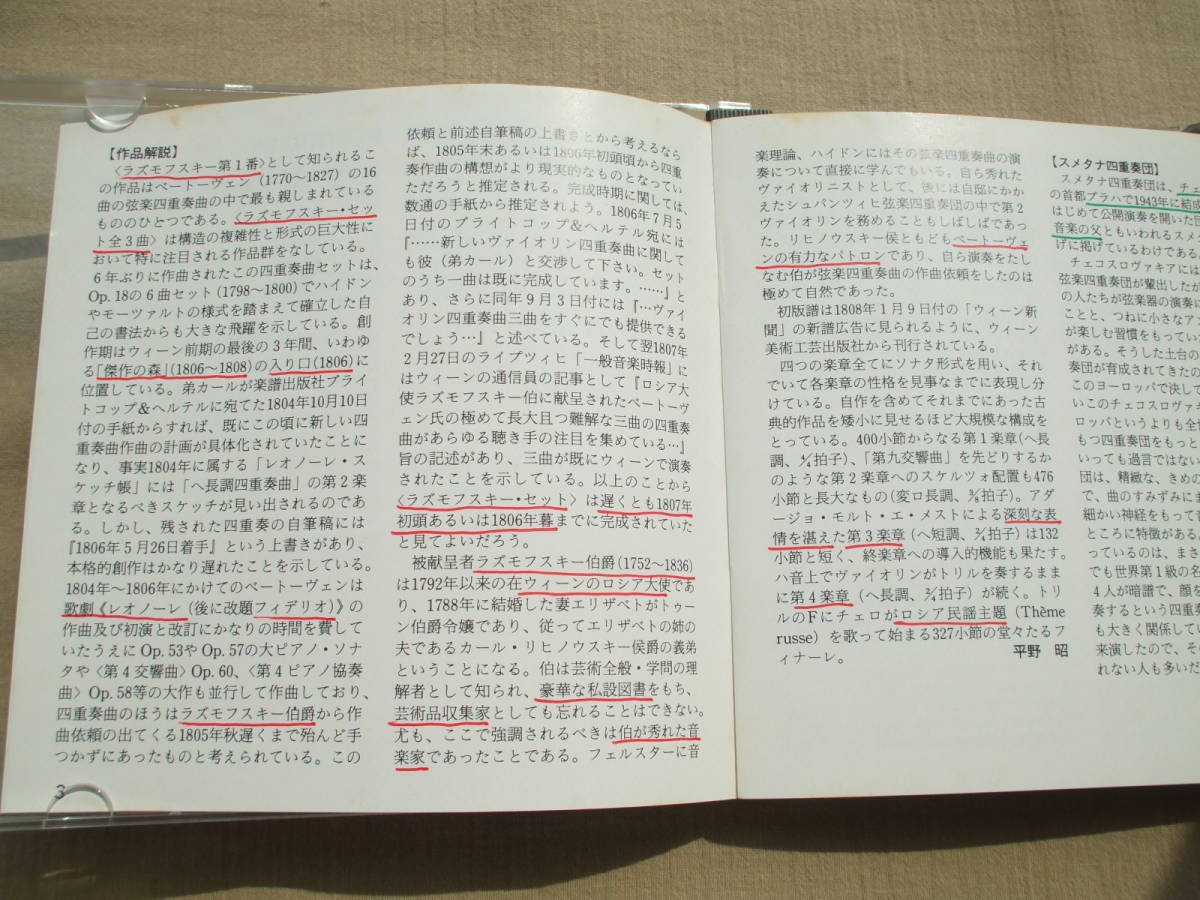 【作品解説】
〈ラズモフスキー第1番〉として知られるこ
の作品はベートーヴェン(1770〜1827)の16
曲の弦楽四重奏曲の中で最も親しまれている
もののひとつである。〈ラズモフスキー・セッ
ト全3曲〉は構造の複雑性と形式の巨大性に
おいて特に注目される作品群をなしている。
6年ぶりに作曲されたこの四重奏曲セットは、
Op.18の6曲セット(1798〜1800)でハイドン
やモーツァルトの様式を踏まえて確立した自
己の書法からも大きな飛躍を示している。創
作期はウィーン前期の最後の3年間、いわゆ
る「傑作の森」(1806〜1808)の入り口(1806)に
位置している。弟カールが楽譜出版社ブライ
トコップ&ヘルテルに宛てた1804年10月10日
付の手紙からすれば、既にこの頃に新しい四
重奏曲作曲の計画が具体化されていたことに
なり、事実1804年に属する「レオノーレ・ス
ケッチ帳」には「ヘ長調四重奏曲」の第2楽
章となるべきスケッチが見い出されるのであ
る。しかし、残された四重奏の自筆稿には
『1806年5月26日着手』という上書きがあり、
本格的創作はかなり遅れたことを示している。
1804年〜1806年にかけてのベートーヴェンは
歌劇《レオノーレ(後に改題フィデリオ)》の
作曲及び初演と改訂にかなりの時間を費して
いたうえにOp.53やOp.57の大ピアノ・ソナ
タや〈第4交響曲〉Op.60、〈第4ピアノ協奏
曲〉Op.58等の大作も並行して作曲しており、
四重奏曲のほうはラズモフスキー伯爵から作
曲依頼の出てくる1805年秋遅くまで殆んど手
つかずにあったものと考えられている。この
3
依頼と前述自筆稿の上書きとから考えるなら
ば、1805年末あるいは1806年初頭頃から四重
奏作曲の構想がより現実的なものとなってい
ただろうと推定される。完成時期に関しては、
数通の手紙から推定されよう。1806年7月5
日付のブライトコップ&ヘルテル宛には
『……新しいヴァイオリン四重奏曲に関して
も彼(弟カール)と交渉して下さい。セット
のうち一曲は既に完成しています。……』と
あり、さらに同年9月3日付には『…ヴァイ
オリン四重奏曲三曲をすぐにでも提供できる
でしょう…』と述べている。そして翌1807年
2月27日のライプツィヒ「一般音楽時報」に
はウィーンの通信員の記事として『ロシア大
使ラズモフスキー伯に献呈されたベートーヴ
ェン氏の極めて長大且つ難解な三曲の四重奏
曲があらゆる聴き手の注目を集めている…』
旨の記述があり、三曲が既にウィーンで演奏
されたことを示している。以上のことから
〈ラズモフスキー・セット〉は遅くとも1807年
初頭あるいは1806年暮までに完成されていた
と見てよいだろう。
被献呈者ラズモフスキー伯爵(1752〜1836)
は1792年以来の在ウィーンのロシア大使であ
り、1788年に結婚した妻エリザベトがトゥー
ン伯爵令嬢であり、従ってエリザベトの姉の
夫であるカール・リヒノウスキー侯爵の義弟
ということになる。伯は芸術全般・学問の理
解者として知られ、豪華な私設図書をもち、
芸術品収集家としても忘れることはできない。
尤も、ここで強調されるべきは伯が秀れた音
楽家であったことである。フェルスターに音
楽理論、ハイドンにはその弦楽四重奏曲の演
奏について直接に学んでもいる。自ら秀れた
ヴァイオリニストとして、後には自邸にかか
えたシュパンツィヒ弦楽四重奏団の中で第2
ヴァイオリンを務めることもしばしばであっ
た。リヒノウスキー侯ともどもベートーヴェ
ンの有力なパトロンであり、自ら演奏をたし
なむ伯が弦楽四重奏曲の作曲依頼をしたのは
極めて自然であった。
初版譜は1808年1月9日付の「ウィーン新
聞」の新譜広告に見られるように、ウィーン
美術工芸出版社から刊行されている。
四つの楽章全てにソナタ形式を用い、それ
でいて各楽章の性格を見事なまでに表現し分
けている。自作を含めてそれまでにあった古
典的作品を矮小に見せるほど大規模な構成を
とっている。400小節からなる第1楽章(ヘ長
調、4/4拍子)、「第九交響曲」を先どりするか
のような第2楽章へのスケルツォ配置も476
小節と長大なもの(変ロ長調、3/8拍子)。アダ
ージョ・モルト・エ・メストによる深刻な表
情を湛えた第3楽章(ヘ短調、2/4拍子)は132
小節と短く、終楽章への導入的機能も果たす。
ハ音上でヴァイオリンがトリルを奏するまま
に第4楽章(ヘ長調、2/4拍子)が続く。トリ
ルのFにチェロがロシア民謡主題(Thème
russe)を歌って始まる327小節の堂々たるフ
ィナーレ。
平野 昭
【スメタナ四重奏団】
スメタナ四重奏団は、チェ
の首都プラハで1943年に結成
はじめて公開演奏を開いた団
音楽の父ともいわれるスメ
げに掲げているわけである。
チェコスロヴァキアには
弦楽四重奏団が輩出したが
の人たちが弦楽器の演奏に
ことと、つねに小さなアン
が楽しむ習慣をもっていて
がある。そうした土台の
奏団が育成されてきたの
このヨーロッパで決して
いこのチェコスロヴァキ
ロッパというよりも全世
もつ四重奏団をもっと
いっても過言ではない
団は、精緻な、きめの
で、曲のすみずみに
細かい神経をもって音
ところに特徴がある。
っているのは、まさ
でも世界第1級の名
4人が暗譜で、顔を
奏するという四重奏
も大きく関係してい
来演したので、その
れない人も多いだ